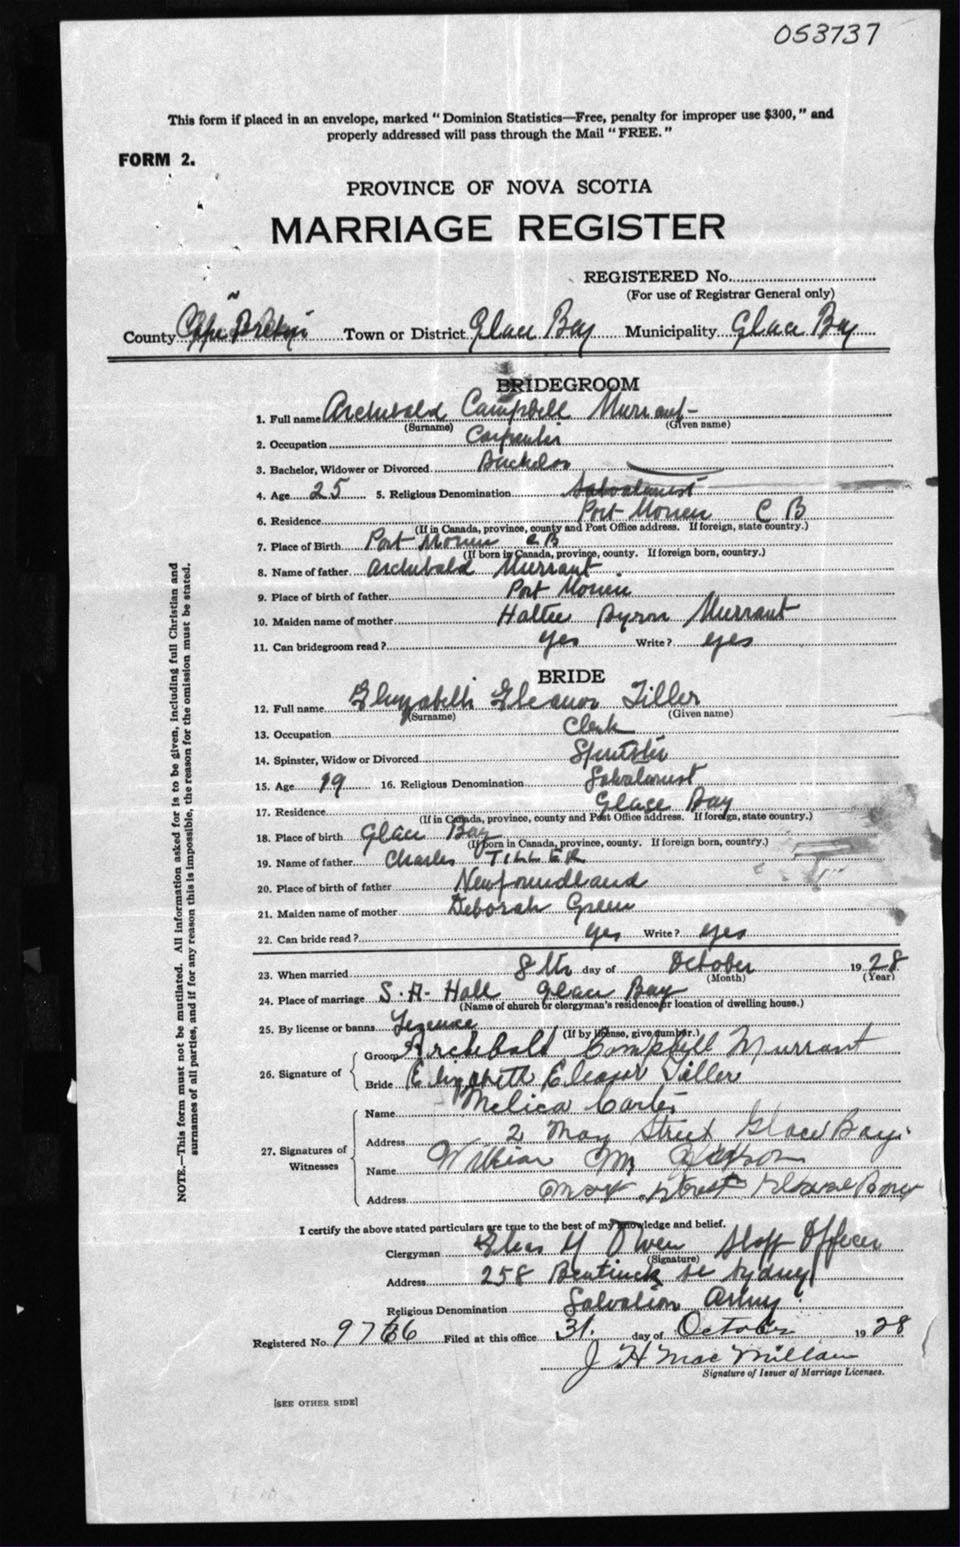 053737
This form if placed in an envelope, marked "Dominion Statistics—Free, penalty for improper use $300," and
properly addressed will pass through the Mail "FREE."
FORM 2.
PROVINCE OF NOVA SCOTIA
MARRIAGE REGISTER
REGISTERED No.
(For use of Registrar General only)
County Cape Breton Town or District Glace Bay Municipality Glace Bay
BRIDEGROOM
1. Full name Archibald Campbell Murrant
(Surname) (Given name)
2. Occupation Carpenter
3. Bachelor, Widower or Divorced Bachelor
4. Age 25 5. Religious Denomination Salvationist
6. Residence Port Morien C B
(If in Canada, province, county and Post Office address. If foreign, state country.)
7. Place of Birth Port Morien C B
(If born in Canada, province, county. If foreign born, country.)
8. Name of father Archibald Murrant
9. Place of birth of father Port Morien
10. Maiden name of mother Hattie Byron Murrant
11. Can bridegroom read? yes Write? yes
BRIDE
12. Full name Elizabeth Eleanor Tiller
(Surname) (Given name)
13. Occupation Clerk
14. Spinster, Widow or Divorced Spinster
15. Age 19 16. Religious Denomination Salvationist
17. Residence Glace Bay
(If in Canada, province, county and Post Office address. If foreign, state country.)
18. Place of birth Glace Bay
(If born in Canada, province, county. If foreign born, country.)
19. Name of father Charles TILLER
20. Place of birth of father Newfoundland
21. Maiden name of mother Deborah Green
22. Can bride read? yes Write? yes
23. When married 8th day of October 1928
(Month) (Year)
24. Place of marriage S.A. Hall Glace Bay
(Name of church or clergyman's residence or location of dwelling house.)
25. By license or banns
(If by license, give number.)
26. Signature of
Groom Archibald Campbell Murrant
Bride Elizabeth Eleanor Tiller
27. Signatures of Witnesses
Name Melica Carter
Address 2 May Street Glace Bay.
Name William M
Address May Street Glace Bay
I certify the above stated particulars are true to the best of my knowledge and belief.
Clergyman Owen Staff Officer
(Signature)
Address 258 Bentinck St Sydney
Religious Denomination Salvation Army
Registered No. Filed at this office 31. day of October 1928
J H MacMillan
Signature of Issuer of Marriage Licenses.
[SEE OTHER SIDE]
NOTE.—This form must not be mutilated. All information asked for is to be given, including full Christian and
surnames of all parties, and if for any reason this is impossible, the reason for the omission must be stated.